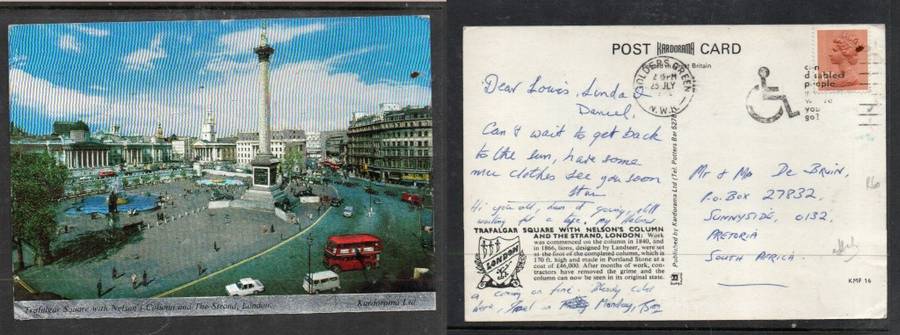 Trafalgar Square with Nelson's Column and The Strand, London.
Kardorama Ltd.
POST KARDORAMA CARD
GOLDERS GREEN
25 JLY
N.W.11
can
disabled
people
you
go?
Dear Louis, Linda &
Daniel.
Can't wait to get back
to the sun, have some
nice clothes see you soon
Hi
waiting for a
TRAFALGAR SQUARE WITH NELSON'S COLUMN
AND THE STRAND, LONDON: Work
was commenced on the column in 1840, and
in 1866, lions, designed by Landseer, were set
at the foot of the completed column, which is
170 ft. high and made in Portland Stone at a
cost of £46,000. After months of work, con-
tractors have removed the grime and the
column can now be seen in its original state.
LONDON
coming on fine.
Monday
Published by Kardorama Ltd (Tel. Potters Bar
Mr + Mrs De Bruin,
P.O. Box 27832,
SUNNYSIDE, 0132,
PRETORIA
SOUTH AFRICA.
KMF 16